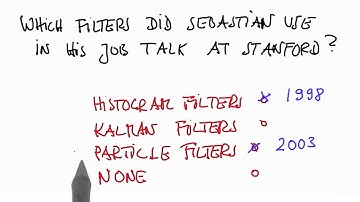 WHICH FILTERS DID SEBASTIAN USE
IN HIS JOB TALK AT STANFORD?
HISTOGRAM FILTERS 1998
KALMAN FILTERS
PARTICLE FILTERS 2003
NONE